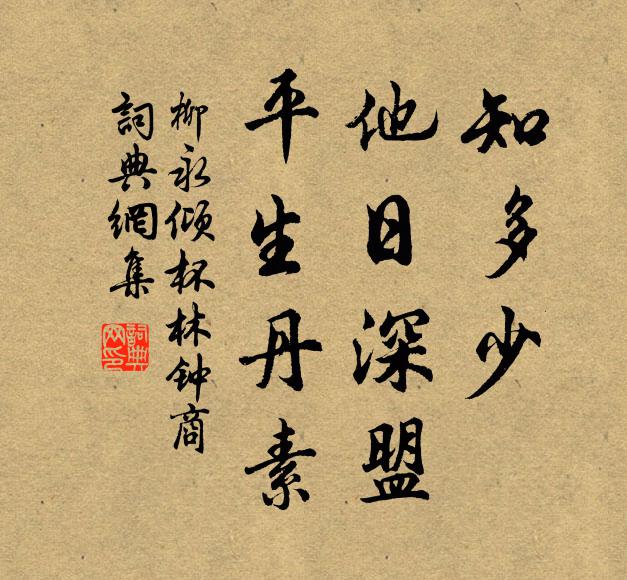 知多少
他日深盟
平生丹素
柳永傾杯林钟商
詞典網集
詞典网印